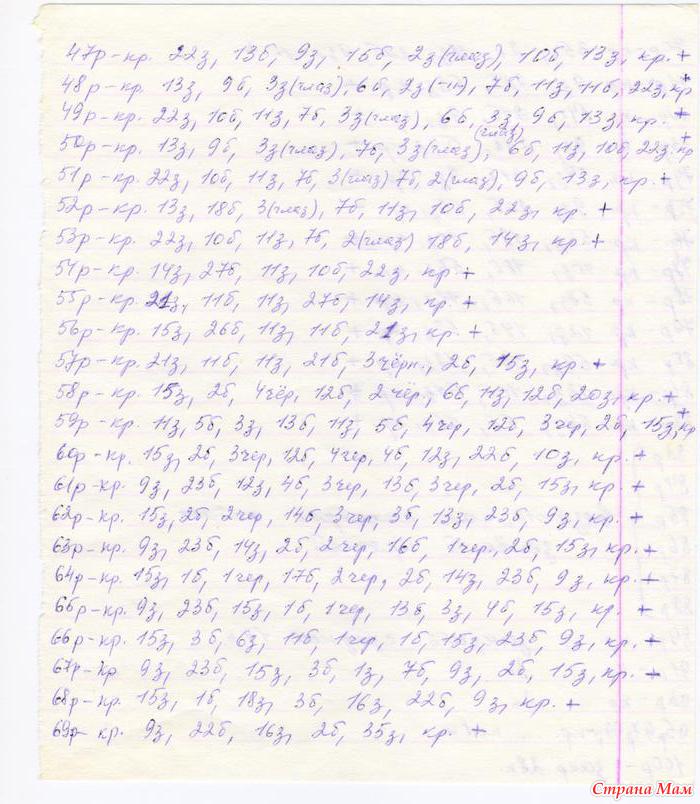 47р-кр. 22з, 13б, 9з, 16б, 2з(глаз), 10б, 13з, кр. +
48р-кр. 13з, 9б, 3з(глаз), 6б, 2з(-"-), 7б, 11з, 11б, 22з, кр +
49р-кр. 22з, 10б, 11з, 7б, 3з(глаз), 6б, 3з (глаз), 9б, 13з, кр. +
50р-кр. 13з, 9б, 3з(глаз), 7б, 3з(глаз), 6б, 11з, 10б, 22з, кр +
51р-кр. 22з, 10б, 11з, 7б, 3(глаз) 7б, 2(глаз), 9б, 13з, кр. +
52р-кр. 13з, 18б, 3(глаз), 7б, 11з, 10б, 22з, кр. +
53р-кр. 22з, 10б, 11з, 7б, 2(глаз) 18б, 14з, кр +
54р-кр. 14з, 27б, 11з, 10б, 22з, кр +
55р-кр. 21з, 11б, 11з, 27б, 14з, кр. +
56р-кр. 15з, 26б, 11з, 11б, 21з, кр. +
57р-кр. 21з, 11б, 11з, 21б, 3чёрн., 2б, 15з, кр. +
58р-кр. 15з, 2б, 4чёр, 12б, 2чёр, 6б, 11з, 12б, 20з, кр. +
59р-кр. 11з, 5б, 3з, 13б, 11з, 5б, 4чер, 12б, 3чер, 2б, 15з, кр +
60р-кр. 15з, 2б, 3чер, 12б, 4чер, 4б, 12з, 22б, 10з, кр. +
61р-кр. 9з, 23б, 12з, 4б, 3чер, 13б, 3чер, 2б, 15з, кр. +
62р-кр. 15з, 2б, 2чер, 14б, 3чер, 3б, 13з, 23б, 9з, кр. +
63р-кр. 9з, 23б, 14з, 2б, 2чер, 16б, 1чер., 2б, 15з, кр. +
64р-кр. 15з, 1б, 1чер, 17б, 2чер, 2б, 14з, 23б, 9з, кр. +
65р-кр. 9з, 23б, 15з, 1б, 1чер, 13б, 3з, 4б, 15з, кр. +
66р-кр. 15з, 3б, 6з, 11б, 1чер, 1б, 15з, 23б, 9з, кр. +
67р-кр 9з, 23б, 15з, 3б, 1з, 7б, 9з, 2б, 15з, кр. +
68р-кр. 15з, 1б, 18з, 3б, 16з, 22б, 9з, кр. +
69р-кр. 9з, 22б, 16з, 2б, 35з, кр. +
Страна Мам